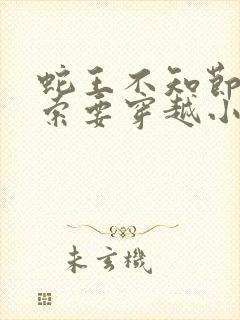 蛇王不知節
索要穿越小
未玄機